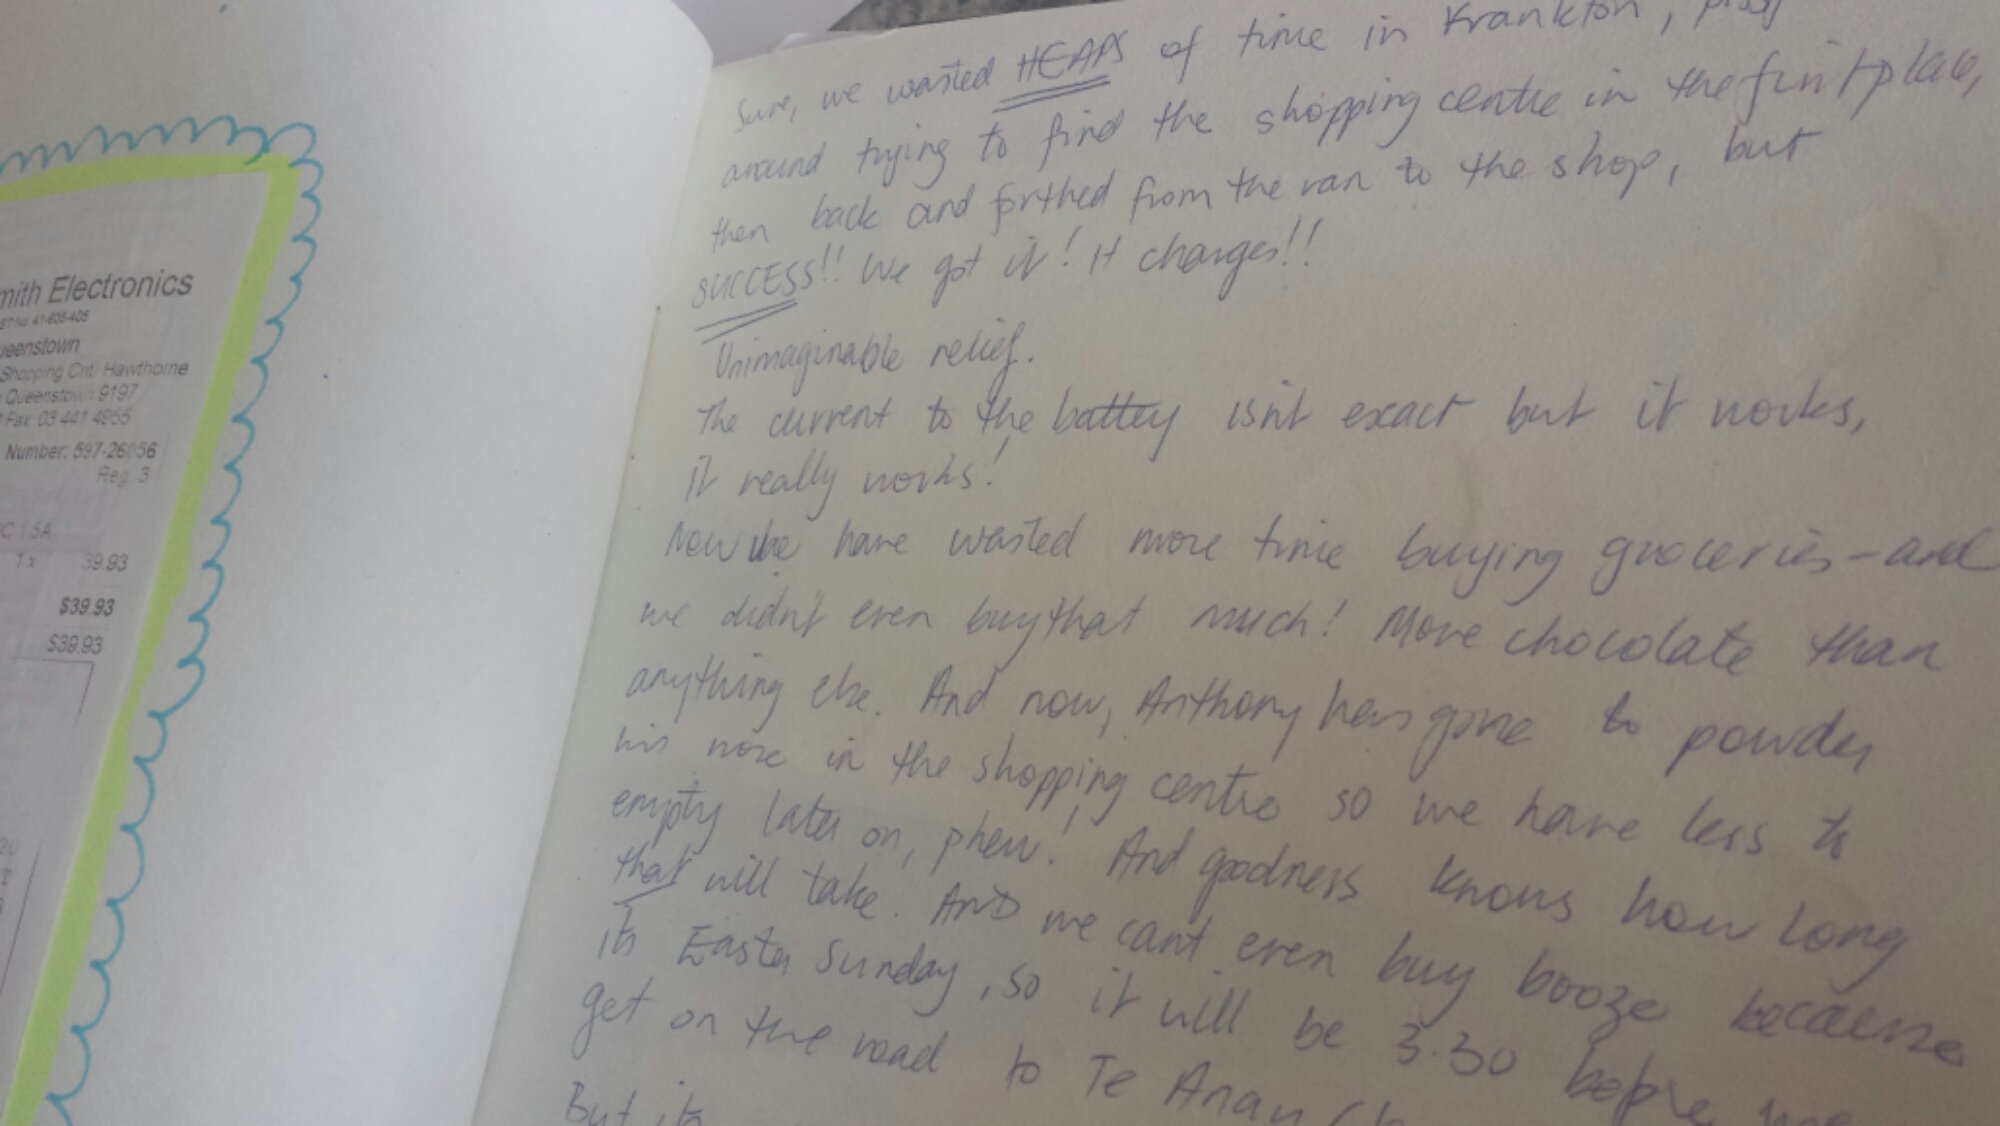 mith Electronics
ST No 41-605-405
ueenstown
Shopping Cntr Hawthorne
Queenstown 9197
Fax 03 441 4955
Number: 597-26056
Reg. 3
C 1.5A
1 x 39.93
$39.93
$39.93
Sure, we wasted HEAPS of time in Frankton,
around trying to find the shopping centre in the first place,
then back and forthed from the van to the shop, but
SUCCESS!! We got it! It charges!!
Unimaginable relief.
The current to the battery isn't exact but it works,
it really works!
Now we have wasted more time buying groceries - and
we didn't even buy that much! More chocolate than
anything else. And now, Anthony has gone to powder
his nose in the shopping centre so we have less to
empty later on, phew! And goodness knows how long
that will take. And we can't even buy booze because
its Easter Sunday, so it will be 3.30 before we
get on the road to Te Anau
But its